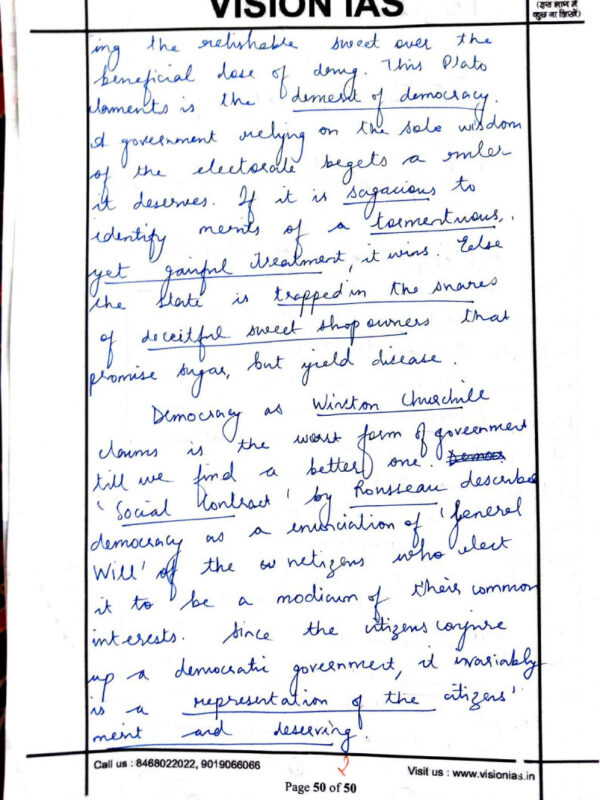 VISION IAS
(इस भाग में
कुछ ना लिखें)
ing the relishable sweet over the
beneficial dose of drug. This Plato
laments is the demerit of democracy.
A government relying on the sole wisdom
of the electorate begets a ruler
it deserves. If it is sagacious to
identify merits of a tormentuous,
yet gainful treatment, it wins. Else
the state is trapped in the snares
of deceitful sweet shop owners that
promise sugar, but yield disease.
Democracy as Winston Churchill
claims is the worst form of government
till we find a better one.
'Social Contract' by Rousseau described
democracy as a enunciation of 'General
Will' of the netizens who elect
it to be a modicum of their common
interests. Since the citizens conjure
up a democratic government, it invariably
is a representation of the citizens'
merit and deserving.
Call us : 8468022022, 9019066066
Visit us : www.visionias.in
Page 50 of 50